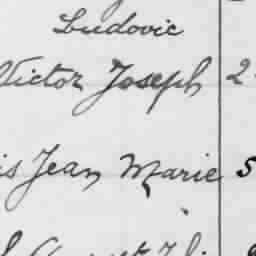 Ludovic
Victor Joseph 2
is Jean Marie 5